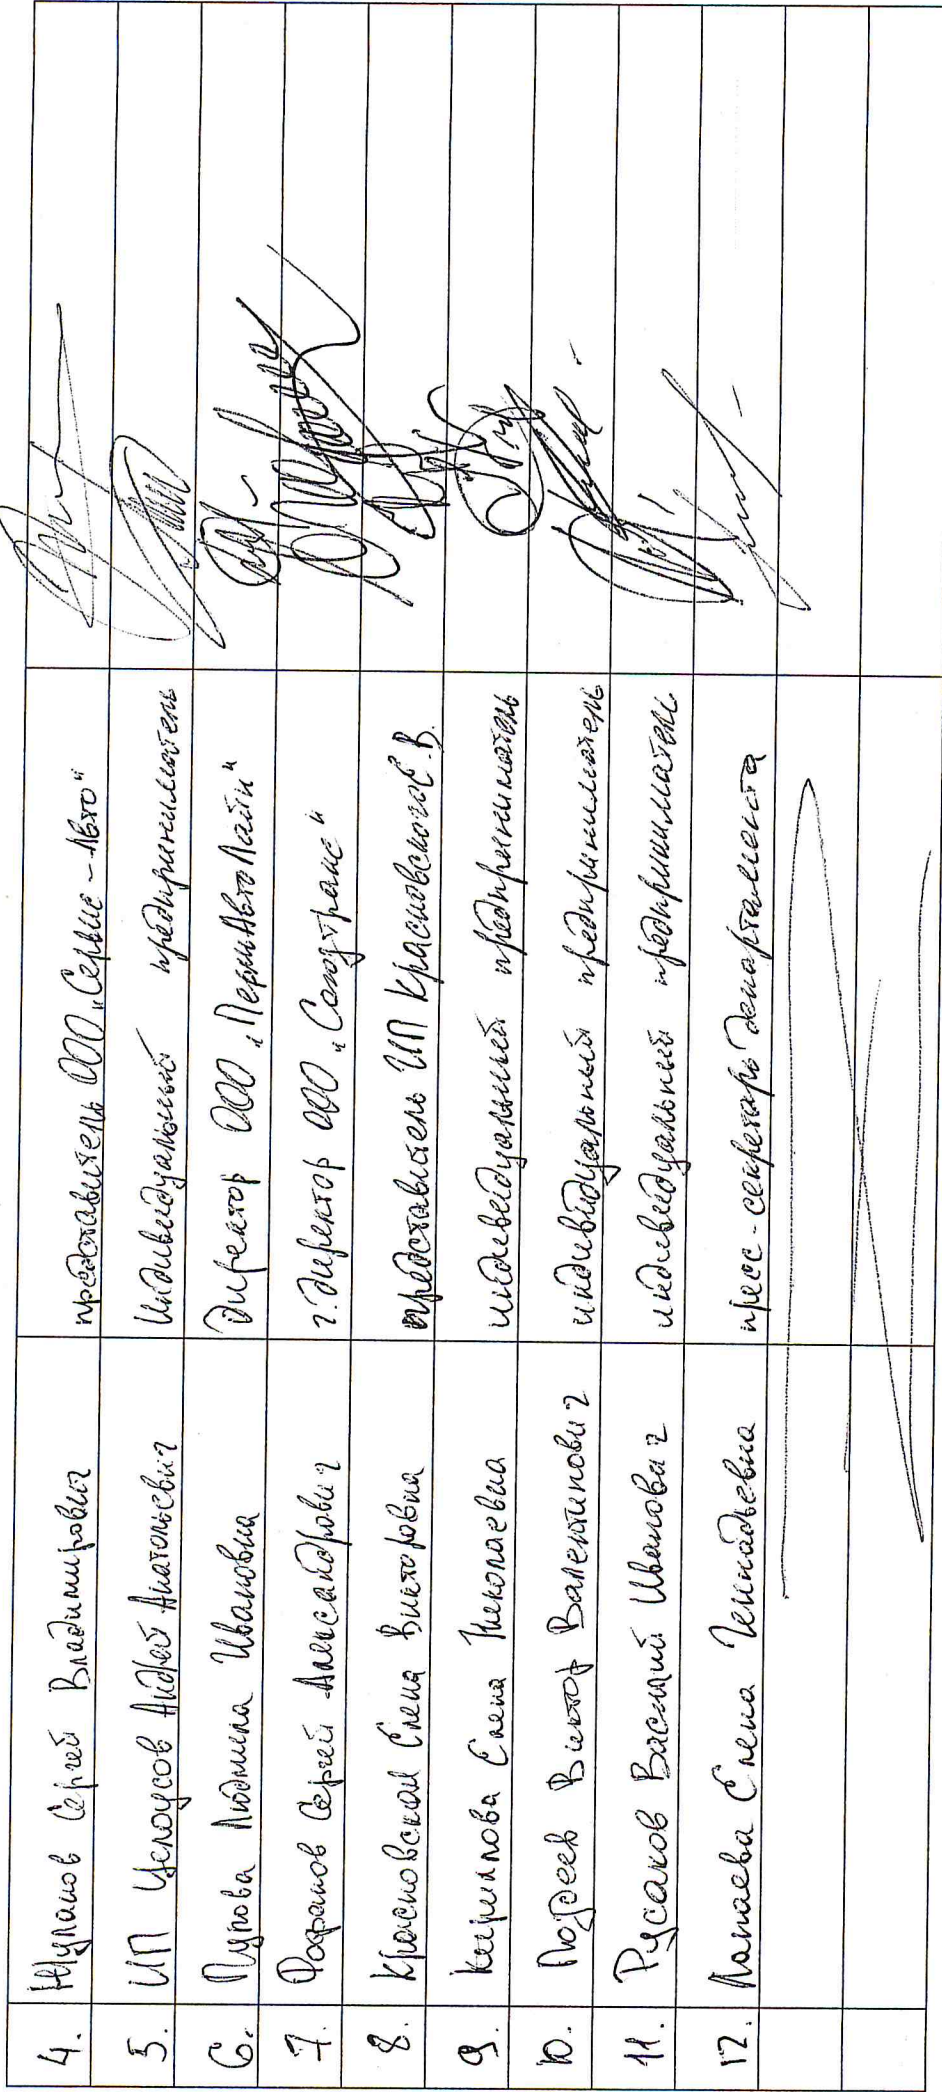 4. Жуланов Сергей Владимирович представитель ООО „Сервис-Авто"
5. ИП Целоусов Андрей Анатольевич Индивидуальный предприниматель
6. Пурова Людмила Ивановна Директор ООО „ПермАвтоЛайн"
7. Фофанов Сергей Александрович г. директор ООО „Союзтранс"
8. Красновская Елена Викторовна представитель ИП Красновского Е.В.
9. Кирилова Елена Николаевна индивидуальный предприниматель
10. Поздеев Виктор Валентинович индивидуальный предприниматель
11. Русаков Василий Иванович индивидуальный предприниматель
12. Лапаева Елена Геннадьевна пресс-секретарь департамента